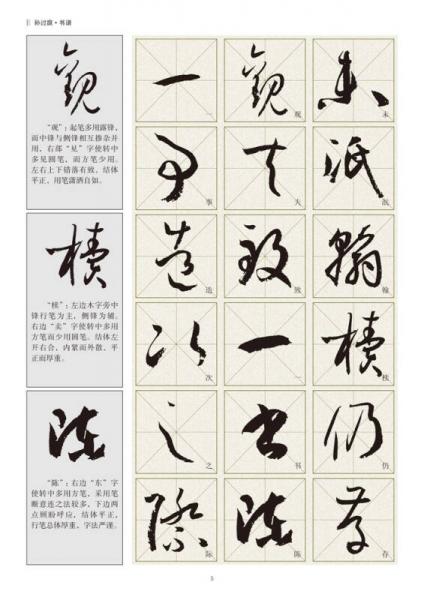 孙过庭·书谱
“观”：起笔多用露锋，
而中锋与侧锋相互掺杂并
用，右部“见”字使转中
多见圆笔，而方笔少用。
左右上下错落有致，结体
平正，用笔潇洒自如。
“椟”：左边木字旁中
锋行笔为主，侧锋为辅。
右边“卖”字使转中多用
方笔而少用圆笔。结体左
开右合，内紧而外散，平
正而厚重。
“陈”：右边“东”字
使转中多用方笔，采用笔
断意连之法较多，下边两
点顾盼呼应，结体平正，
行笔总体厚重，字法严谨。
一 观 未
事
造 致 翰
次 一 椟
之 书 仍
际 陈 存
5